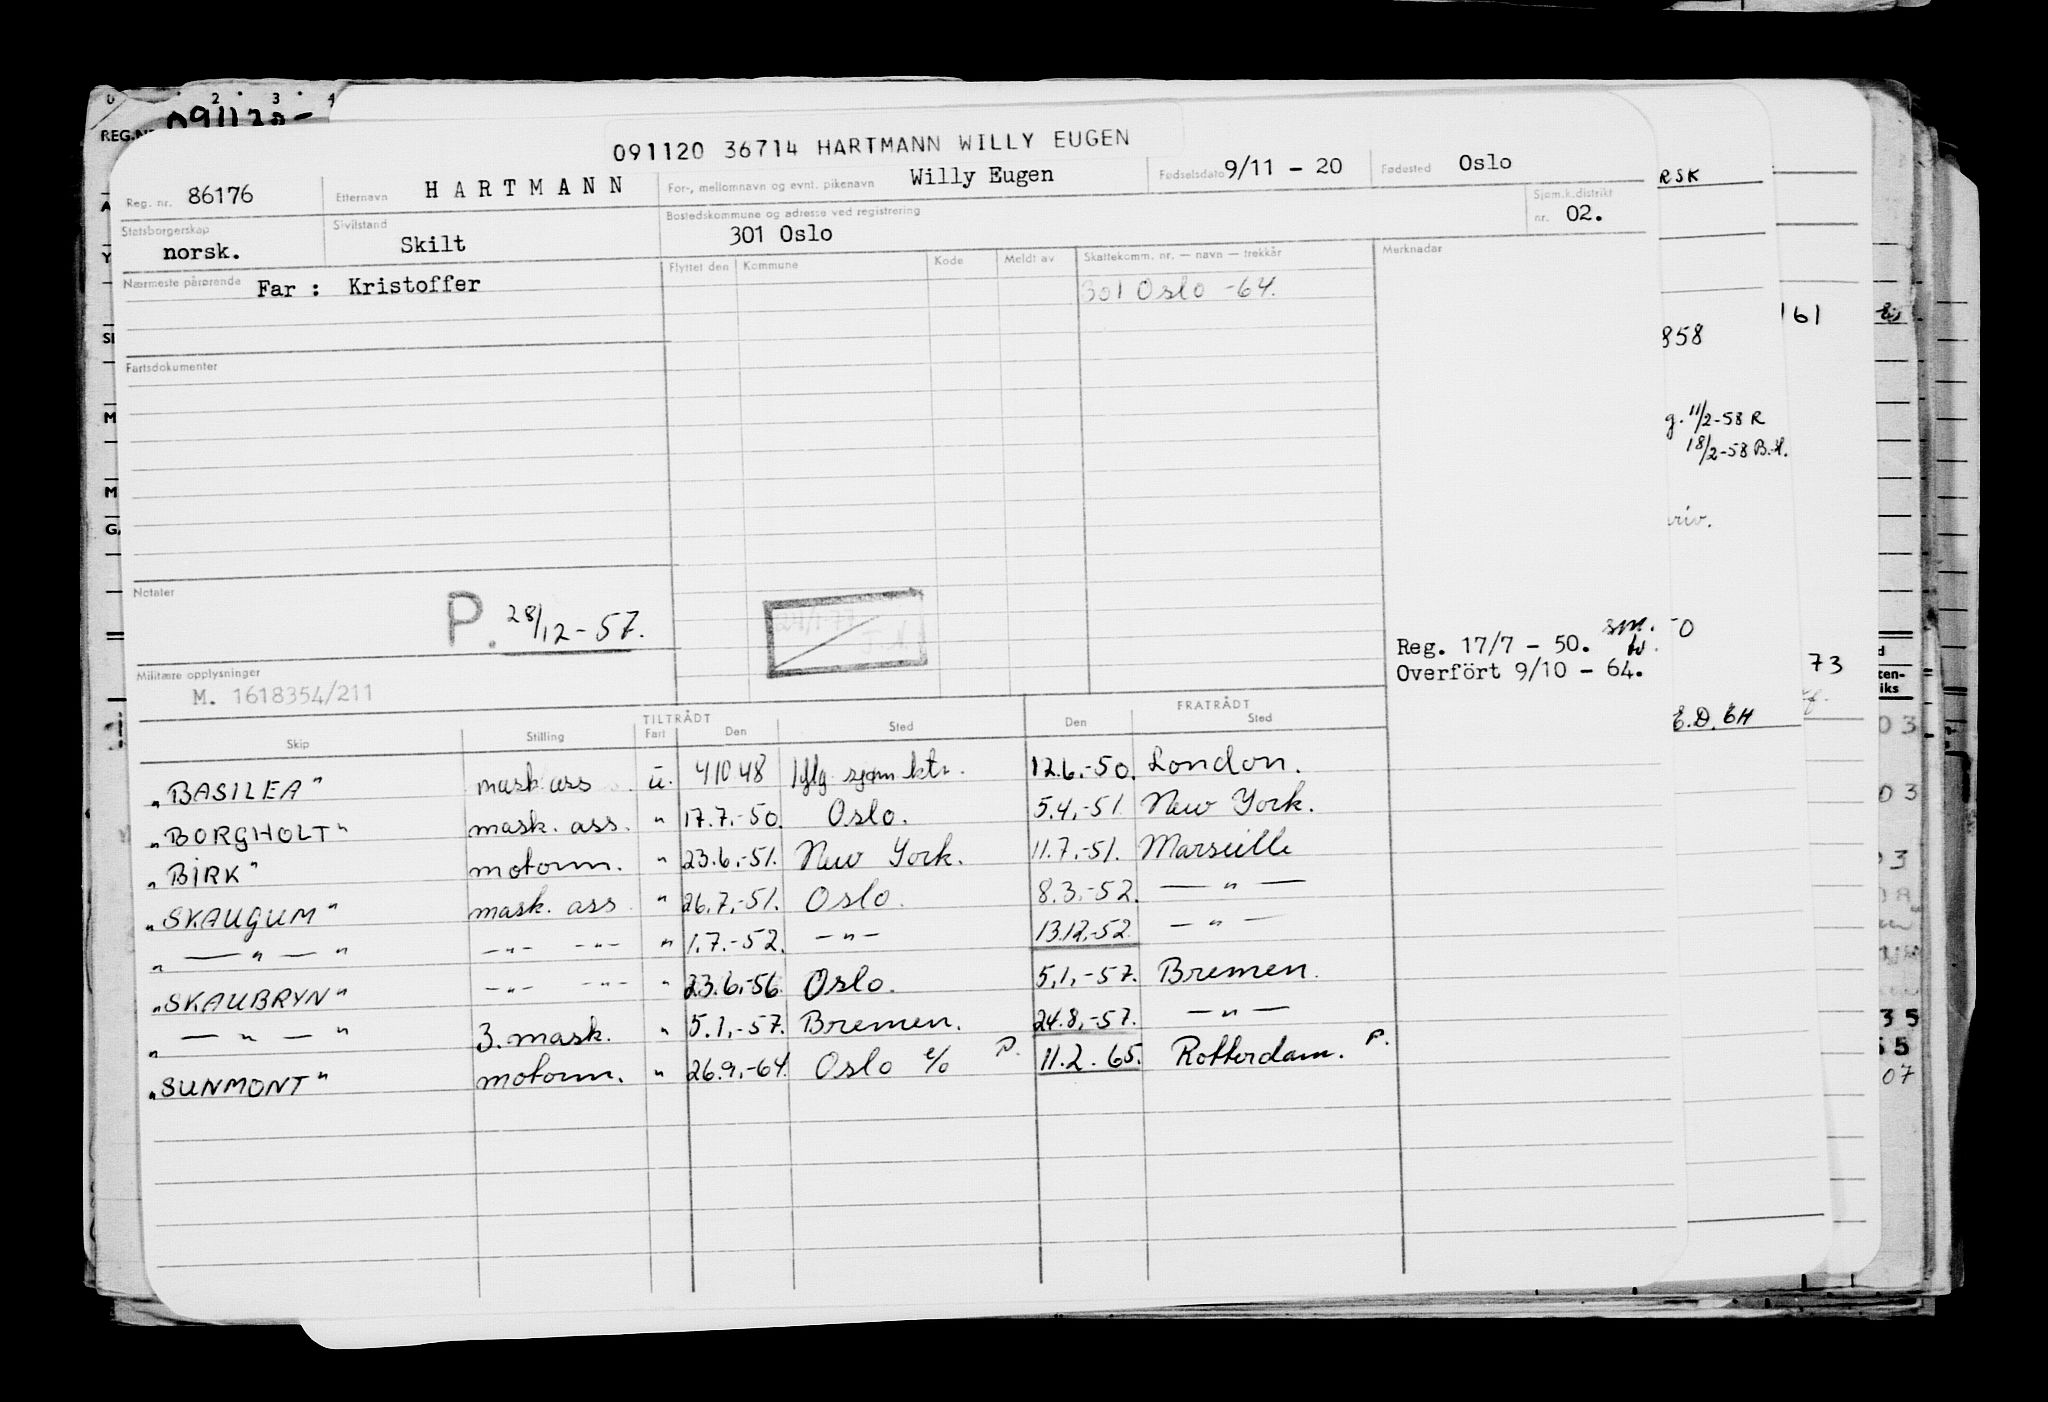 0 2 3 4
REG.NR 091120-
091120 36714 HARTMANN WILLY EUGEN
Reg. nr. 86176 Etternavn HARTMANN For-, mellomnavn og evnt. pikenavn Willy Eugen Fødselsdato 9/11 - 20 Fødested Oslo
Statsborgerskap norsk. Sivilstand Skilt Bostedskommune og adresse ved registrering 301 Oslo Sjøm.k.distrikt nr. 02.
Nærmeste pårørende Far : Kristoffer Flyttet den Kommune Kode Meldt av Skattekomm. nr. — navn — trekkår Merknader
301 Oslo -64.
Fartsdokumenter
Notater P. 28/12-57.
Reg. 17/7 - 50. sm.
Overfört 9/10 - 64.
Militære opplysninger
M. 1618354/211
TILTRÅDT FRATRÅDT
Skip Stilling Fart Den Sted Den Sted
"BASILEA" mask ass u. 41048 Iflg sjøm ktr. 12.6.-50. London.
"BORGHOLT" mask. ass. " 17.7.-50. Oslo. 5.4.-51. New York.
"BIRK" motorm. " 23.6.-51. New York. 11.7.-51. Marseille
"SKAUGUM" mask. ass. " 26.7.-51. Oslo. 8.3.-52. — " —
" — " — " -"- -"- " 1.7.-52. — " — 13.12.-52. — " —
"SKAUBRYN" -"- -"- " 23.6.-56 Oslo. 5.1.-57. Bremen.
" — " — " 3. mask. " 5.1.-57. Bremen. 24.8.-57. — " —
"SUNMONT" motorm. " 26.9.-64. Oslo e/o P. 11.2.65. Rotterdam. P.
RSK
858
161
g. 11/2-58 R
18/2-58 B.H.
riv.
73
E.D. 6H
03
03
3
35
55
07